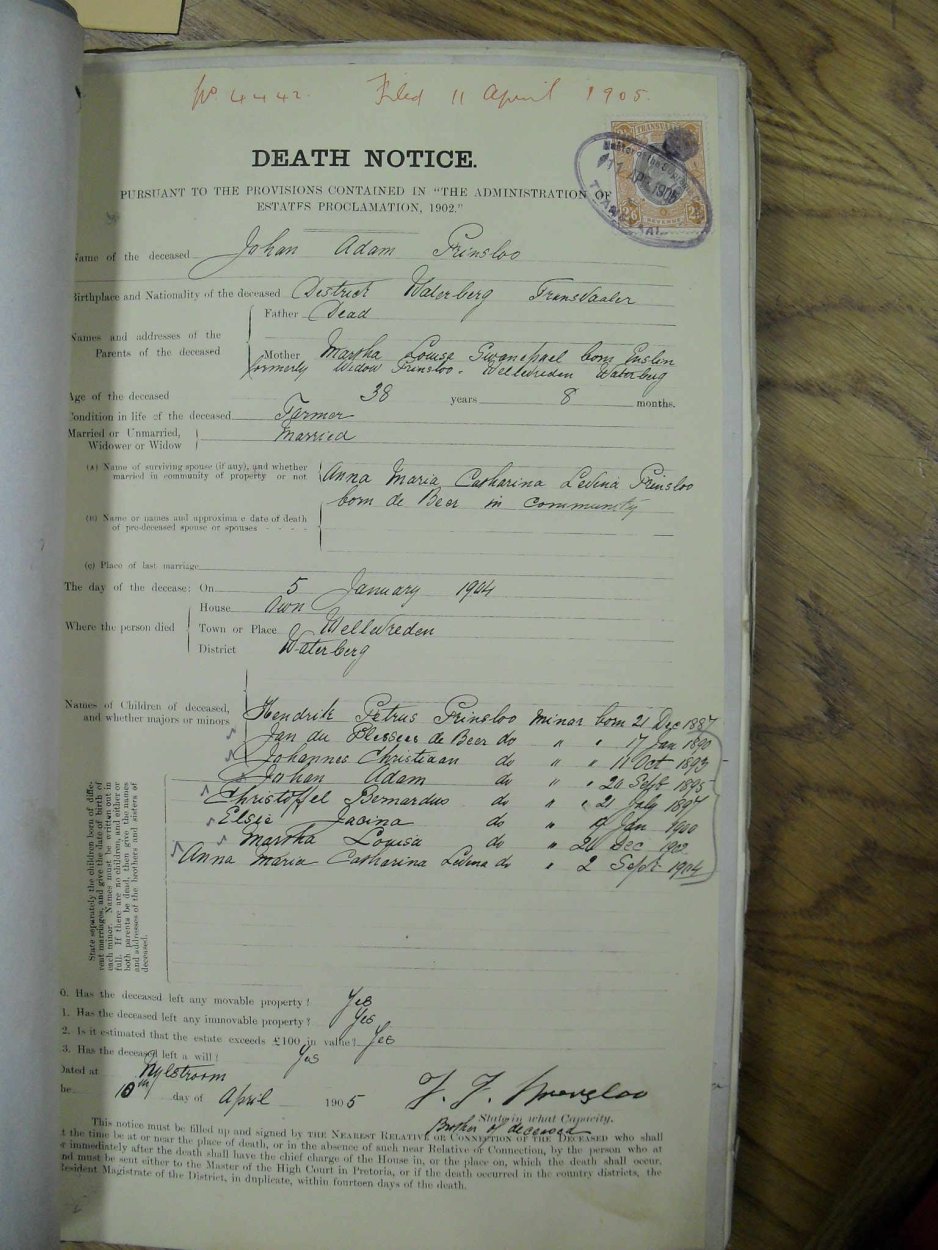 No. 4442. Filed 11 April 1905.
TRANSVAAL
2/6 REVENUE
APR 1905
DEATH NOTICE.
PURSUANT TO THE PROVISIONS CONTAINED IN "THE ADMINISTRATION OF
ESTATES PROCLAMATION, 1902."
Name of the deceased Johan Adam Prinsloo
Birthplace and Nationality of the deceased District Waterberg Transvaaler
Names and addresses of the Parents of the deceased
Father Dead
Mother Martha Louisa Swanepael born Enslin
formerly Widow Prinsloo - Wellvreden Waterberg
Age of the deceased 38 years 8 months.
Condition in life of the deceased Farmer
Married or Unmarried, Widower or Widow Married
(A) Name of surviving spouse (if any), and whether married in community of property or not
Anna Maria Catharina Levina Prinsloo
born de Beer in community
(B) Name or names and approximate date of death
of pre-deceased spouse or spouses
(C) Place of last marriage
The day of the decease: On 5 January 1904
Where the person died
House Own
Town or Place Wellvreden
District Waterberg
Names of Children of deceased,
and whether majors or minors
Hendrik Petrus Prinsloo Minor born 21 Dec 1887
Jan du Plessees de Beer do " " 17 Jan 1890
Johannes Christiaan do " " 11 Oct 1893
Johan Adam do " " 20 Sept 1895
Christoffel Bernardus do " " 21 July 1897
Elsie Jacina do " 19 Jan 1900
Martha Louisa do " 20 Dec 1902
Anna Maria Catharina Levena do " 2 Sept 1904
State separately the children born of diffe-
rent marriages, and give the date of birth of
each minor. Names must be written out in
full. If there are no children, and either or
both parents be dead, then give the names
and addresses of the brothers and sisters of
deceased.
0. Has the deceased left any movable property? Yes
1. Has the deceased left any immovable property? Yes
2. Is it estimated that the estate exceeds £100 in value? Yes
3. Has the deceased left a will? Yes
Dated at Nylstroom
the 10th day of April 1905
State in what Capacity.
Brother of deceased
This notice must be filled up and signed by THE NEAREST RELATIVE OR CONNECTION OF THE DECEASED who shall
at the time be at or near the place of death, or in the absence of such near Relative or Connection, by the person who at
or immediately after the death shall have the chief charge of the House in, or the place on, which the death shall occur,
and must be sent either to the Master of the High Court in Pretoria, or if the death occurred in the country districts, the
Resident Magistrate of the District, in duplicate, within fourteen days of the death.